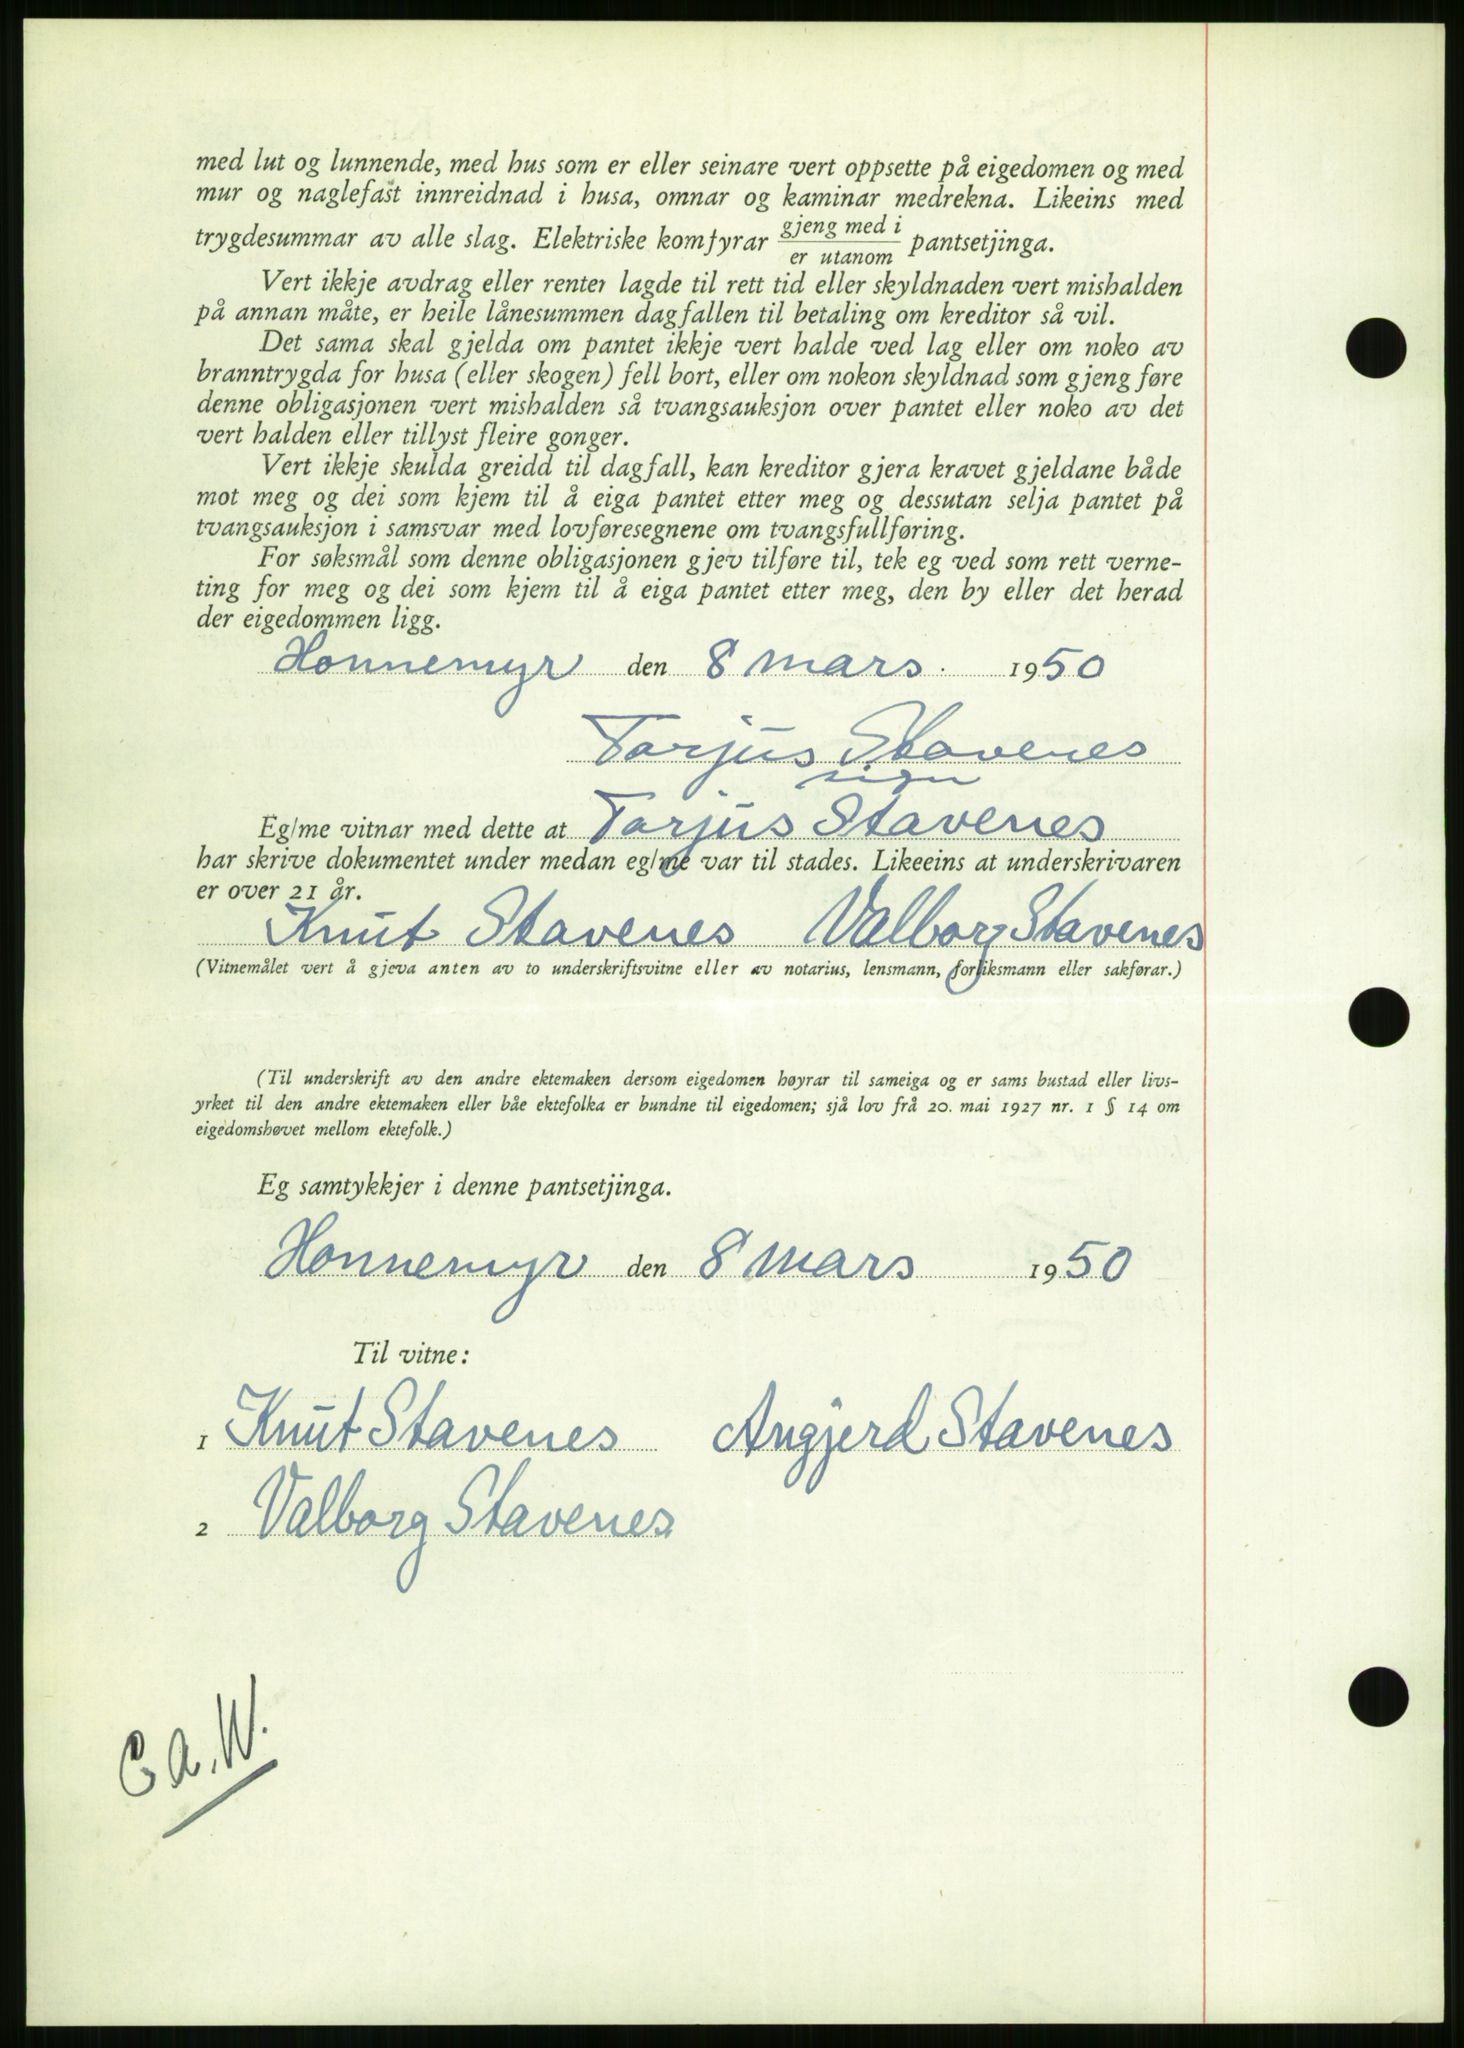 med lut og lunnende, med hus som er eller seinare vert oppsette på eigedomen og med
mur og naglefast innreidnad i husa, omnar og kaminar medrekna. Likeins med
trygdesummar av alle slag. Elektriske komfyrar gjeng med i / er utanom pantsetjinga.
Vert ikkje avdrag eller renter lagde til rett tid eller skyldnaden vert mishalden
på annan måte, er heile lånesummen dagfallen til betaling om kreditor så vil.
Det sama skal gjelda om pantet ikkje vert halde ved lag eller om noko av
branntrygda for husa (eller skogen) fell bort, eller om nokon skyldnad som gjeng føre
denne obligasjonen vert mishalden så tvangsauksjon over pantet eller noko av det
vert halden eller tillyst fleire gonger.
Vert ikkje skulda greidd til dagfall, kan kreditor gjera kravet gjeldane både
mot meg og dei som kjem til å eiga pantet etter meg og dessutan selja pantet på
tvangsauksjon i samsvar med lovføresegnene om tvangsfullføring.
For søksmål som denne obligasjonen gjev tilføre til, tek eg ved som rett verne-
ting for meg og dei som kjem til å eiga pantet etter meg, den by eller det herad
der eigedommen ligg.
Honnemyr den 8 mars. 1950
Tarjus Stavenes
sign
Eg/me vitnar med dette at Tarjus Stavenes
har skrive dokumentet under medan eg/me var til stades. Likeeins at underskrivaren
er over 21 år.
Knut Stavenes Valborg Stavenes
(Vitnemålet vert å gjeva anten av to underskriftsvitne eller av notarius, lensmann, forliksmann eller sakførar.)
(Til underskrift av den andre ektemaken dersom eigedomen høyrar til sameiga og er sams bustad eller livs-
yrket til den andre ektemaken eller båe ektefolka er bundne til eigedomen; sjå lov frå 20. mai 1927 nr. 1 § 14 om
eigedomshøvet mellom ektefolk.)
Eg samtykkjer i denne pantsetjinga.
Honnemyr den 8 mars 1950
Til vitne:
1 Knut Stavenes Angjerd Stavenes
2 Valborg Stavenes
C.A.W.